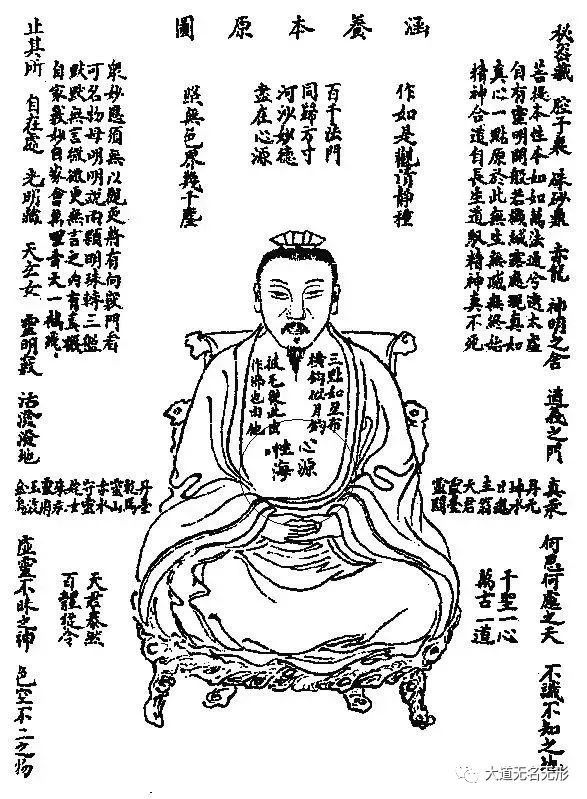 涵養本原圖
秘密藏 腔子裏 硃砂鼎 赤龍 神明之舍 道義之門 真 何思何慮之天 不識不知之地
菩提本性本如如萬法通兮透太虛
自有靈明開般若機緘露處現真如
真心一點原於此無生無滅無終始
精神合道自長生道馭精神真不死
作如是觀清靜種
百千法門
同歸方寸
河沙妙德
盡在心源
照無色界幾千塵
眾妙應須無以觀更將有向竅門看
可名物母明明說兩顆明珠轉三盤
默默無言微更無言之內有真機
自家義妙自家會萬里青天一鶴飛
止其所 自在處 光明藏 天玄女 靈明竅 活潑潑地 虛靈不昧之神 色空不二之物
三點如星布
橫鉤似月鉤
披毛從此出
作佛也由他
心源
性海
丹元
神水
日魂
主翁
天君
靈臺
靈關
千聖一心
萬古一道
丹臺
乾馬
靈山
赤水
守靈
姹女
玉液
金烏
天君泰然
百體從令
大道无名无形